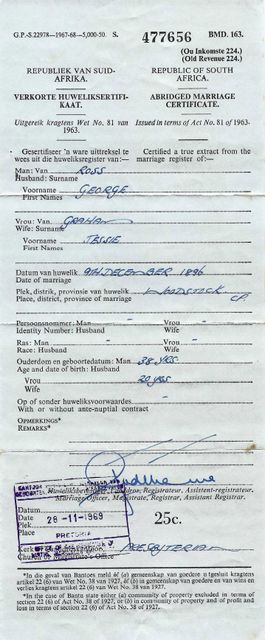 G.P.-S.22978—1967-68—5,000-50. S. 477656 BMD. 163.
(Ou Inkomste 224.)
(Old Revenue 224.)
REPUBLIEK VAN SUID-AFRIKA. REPUBLIC OF SOUTH AFRICA.
VERKORTE HUWELIKSERTIFIKAAT. ABRIDGED MARRIAGE CERTIFICATE.
Uitgereik kragtens Wet No. 81 van 1963. Issued in terms of Act No. 81 of 1963.
Gesertifiseer 'n ware uittreksel te wees uit die huweliksregister van:— Certified a true extract from the marriage register of:—
Man: Van ROSS
Husband: Surname
Voorname GEORGE
First Names
Vrou: Van GRAHAM
Wife: Surname
Voorname JESSIE
First Names
Datum van huwelik 9TH DECEMBER 1896
Date of marriage
Plek, distrik, provinsie van huwelik WOODSTOCK CP.
Place, district, province of marriage
Persoonsnommer: Man – Vrou –
Identity Number: Husband Wife
Ras: Man – Vrou –
Race: Husband Wife
Ouderdom en geboortedatum: Man 38 YRS
Age and date of birth: Husband
Vrou 20 YRS
Wife
Op of sonder huweliksvoorwaardes –
With or without ante-nuptial contract
OPMERKINGS*
REMARKS*
Registrateur, Assistent-registrateur.
Marriage Officer, Magistrate, Registrar, Assistant Registrar.
Datum
Date 29-11-1969 25c.
Plek
PRETORIA
PRESBYTERIAN
*In die geval van Bantoes meld óf (a) gemeenskap van goedere uitgesluit kragtens artikel 22 (6) van Wet No. 38 van 1927, óf (b) in gemeenskap van goedere en van wins en verlies kragtens artikel 22 (6) van Wet No. 38 van 1927.
*In the case of Bantu state either (a) community of property excluded in terms of section 22 (6) of Act No. 38 of 1927, or (b) in community of property and of profit and loss in terms of section 22 (6) of Act No. 38 of 1927.